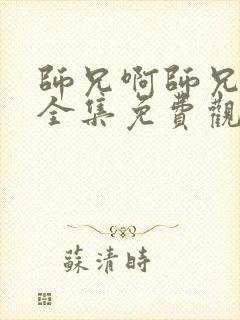 師兄啊師兄
全集免費觀
蘇清時